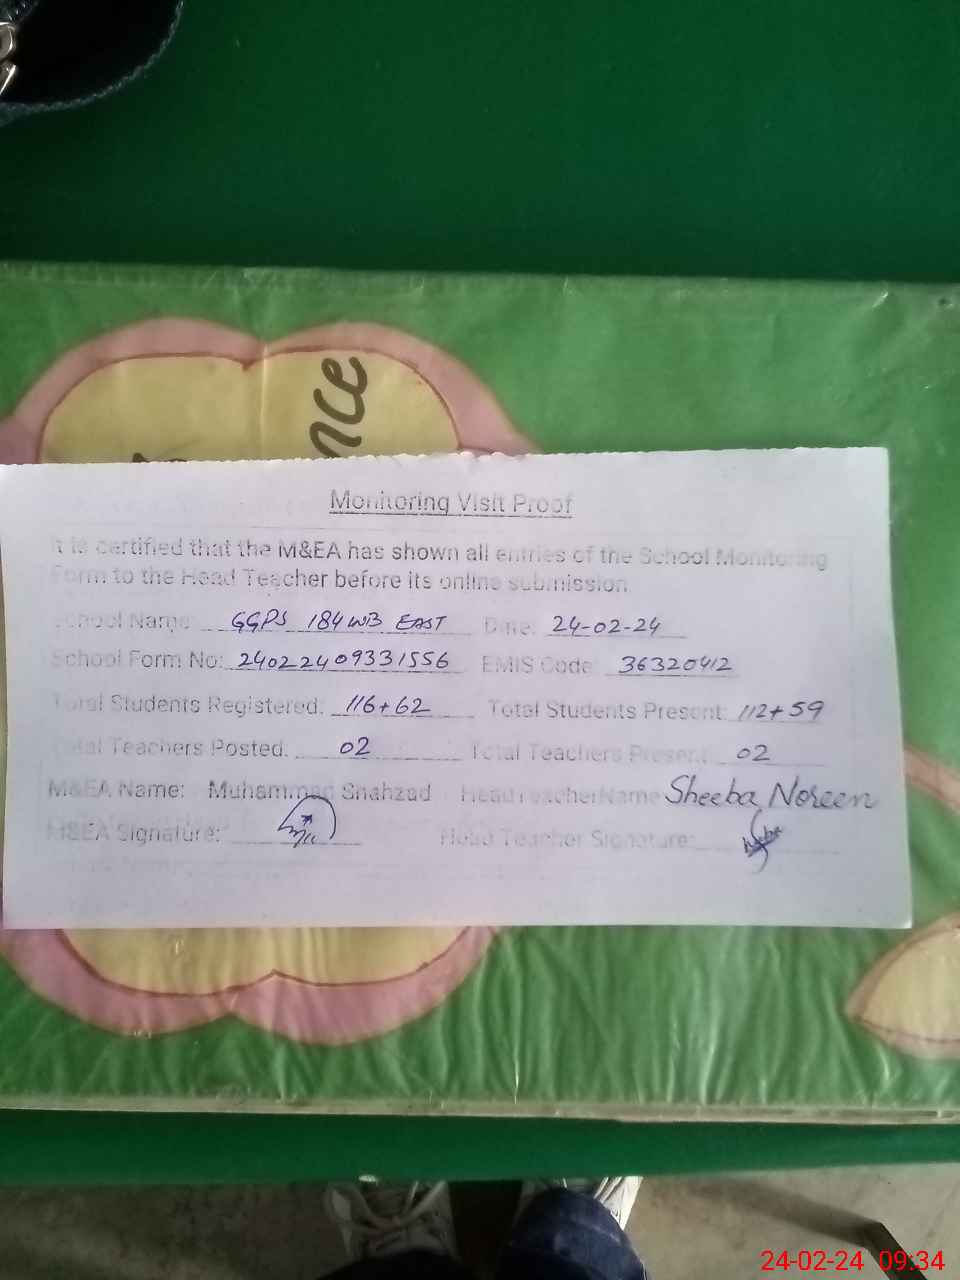 nce
Monitoring Visit Proof
It is certified that the M&EA has shown all entries of the School Monitoring
Form to the Head Teacher before its online submission
School Name: GGPS 184 WB EAST Date: 24-02-24
School Form No: 24022409331556 EMIS Code: 36320412
Total Students Registered: 116+62 Total Students Present: 112+59
Total Teachers Posted: 02 Total Teachers Present: 02
M&EA Name: Muhammad Shahzad HeadTeacherName Sheeba Noreen
M&EA Signature: Head Teacher Signature:
24-02-24 09:34